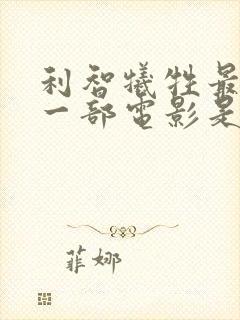 利智犧牲最
一部電影是
菲娜